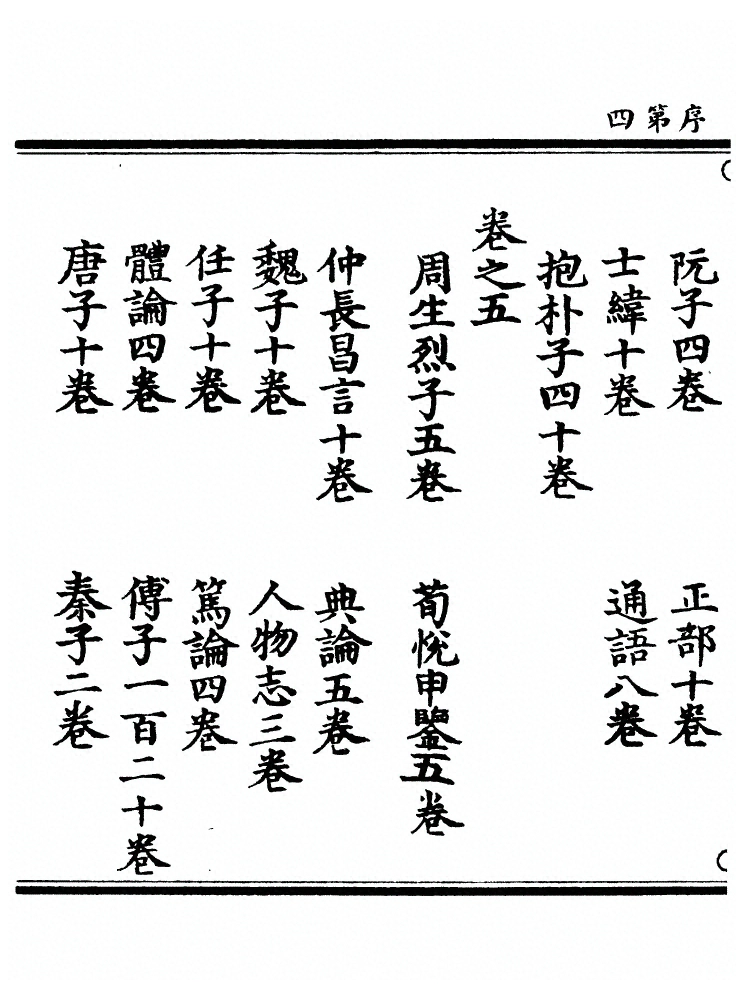 序第四
阮子四卷 正部十卷
士緯十卷 通語八卷
抱朴子四十卷
卷之五
周生烈子五卷 荀悅申鑒五卷
仲長昌言十卷 典論五卷
魏子十卷 人物志三卷
任子十卷 篤論四卷
體論四卷 傅子一百二十卷
唐子十卷 秦子二卷